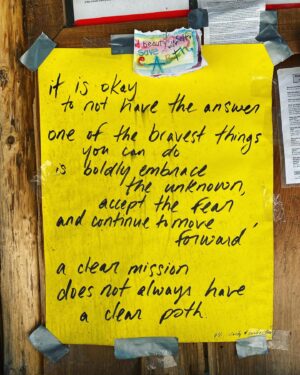 beauty
save
it is okay
to not have the answer
one of the bravest things
you can do
is boldly embrace
the unknown,
accept the fear
and continue to move
forward
a clear mission
does not always have
a clear path